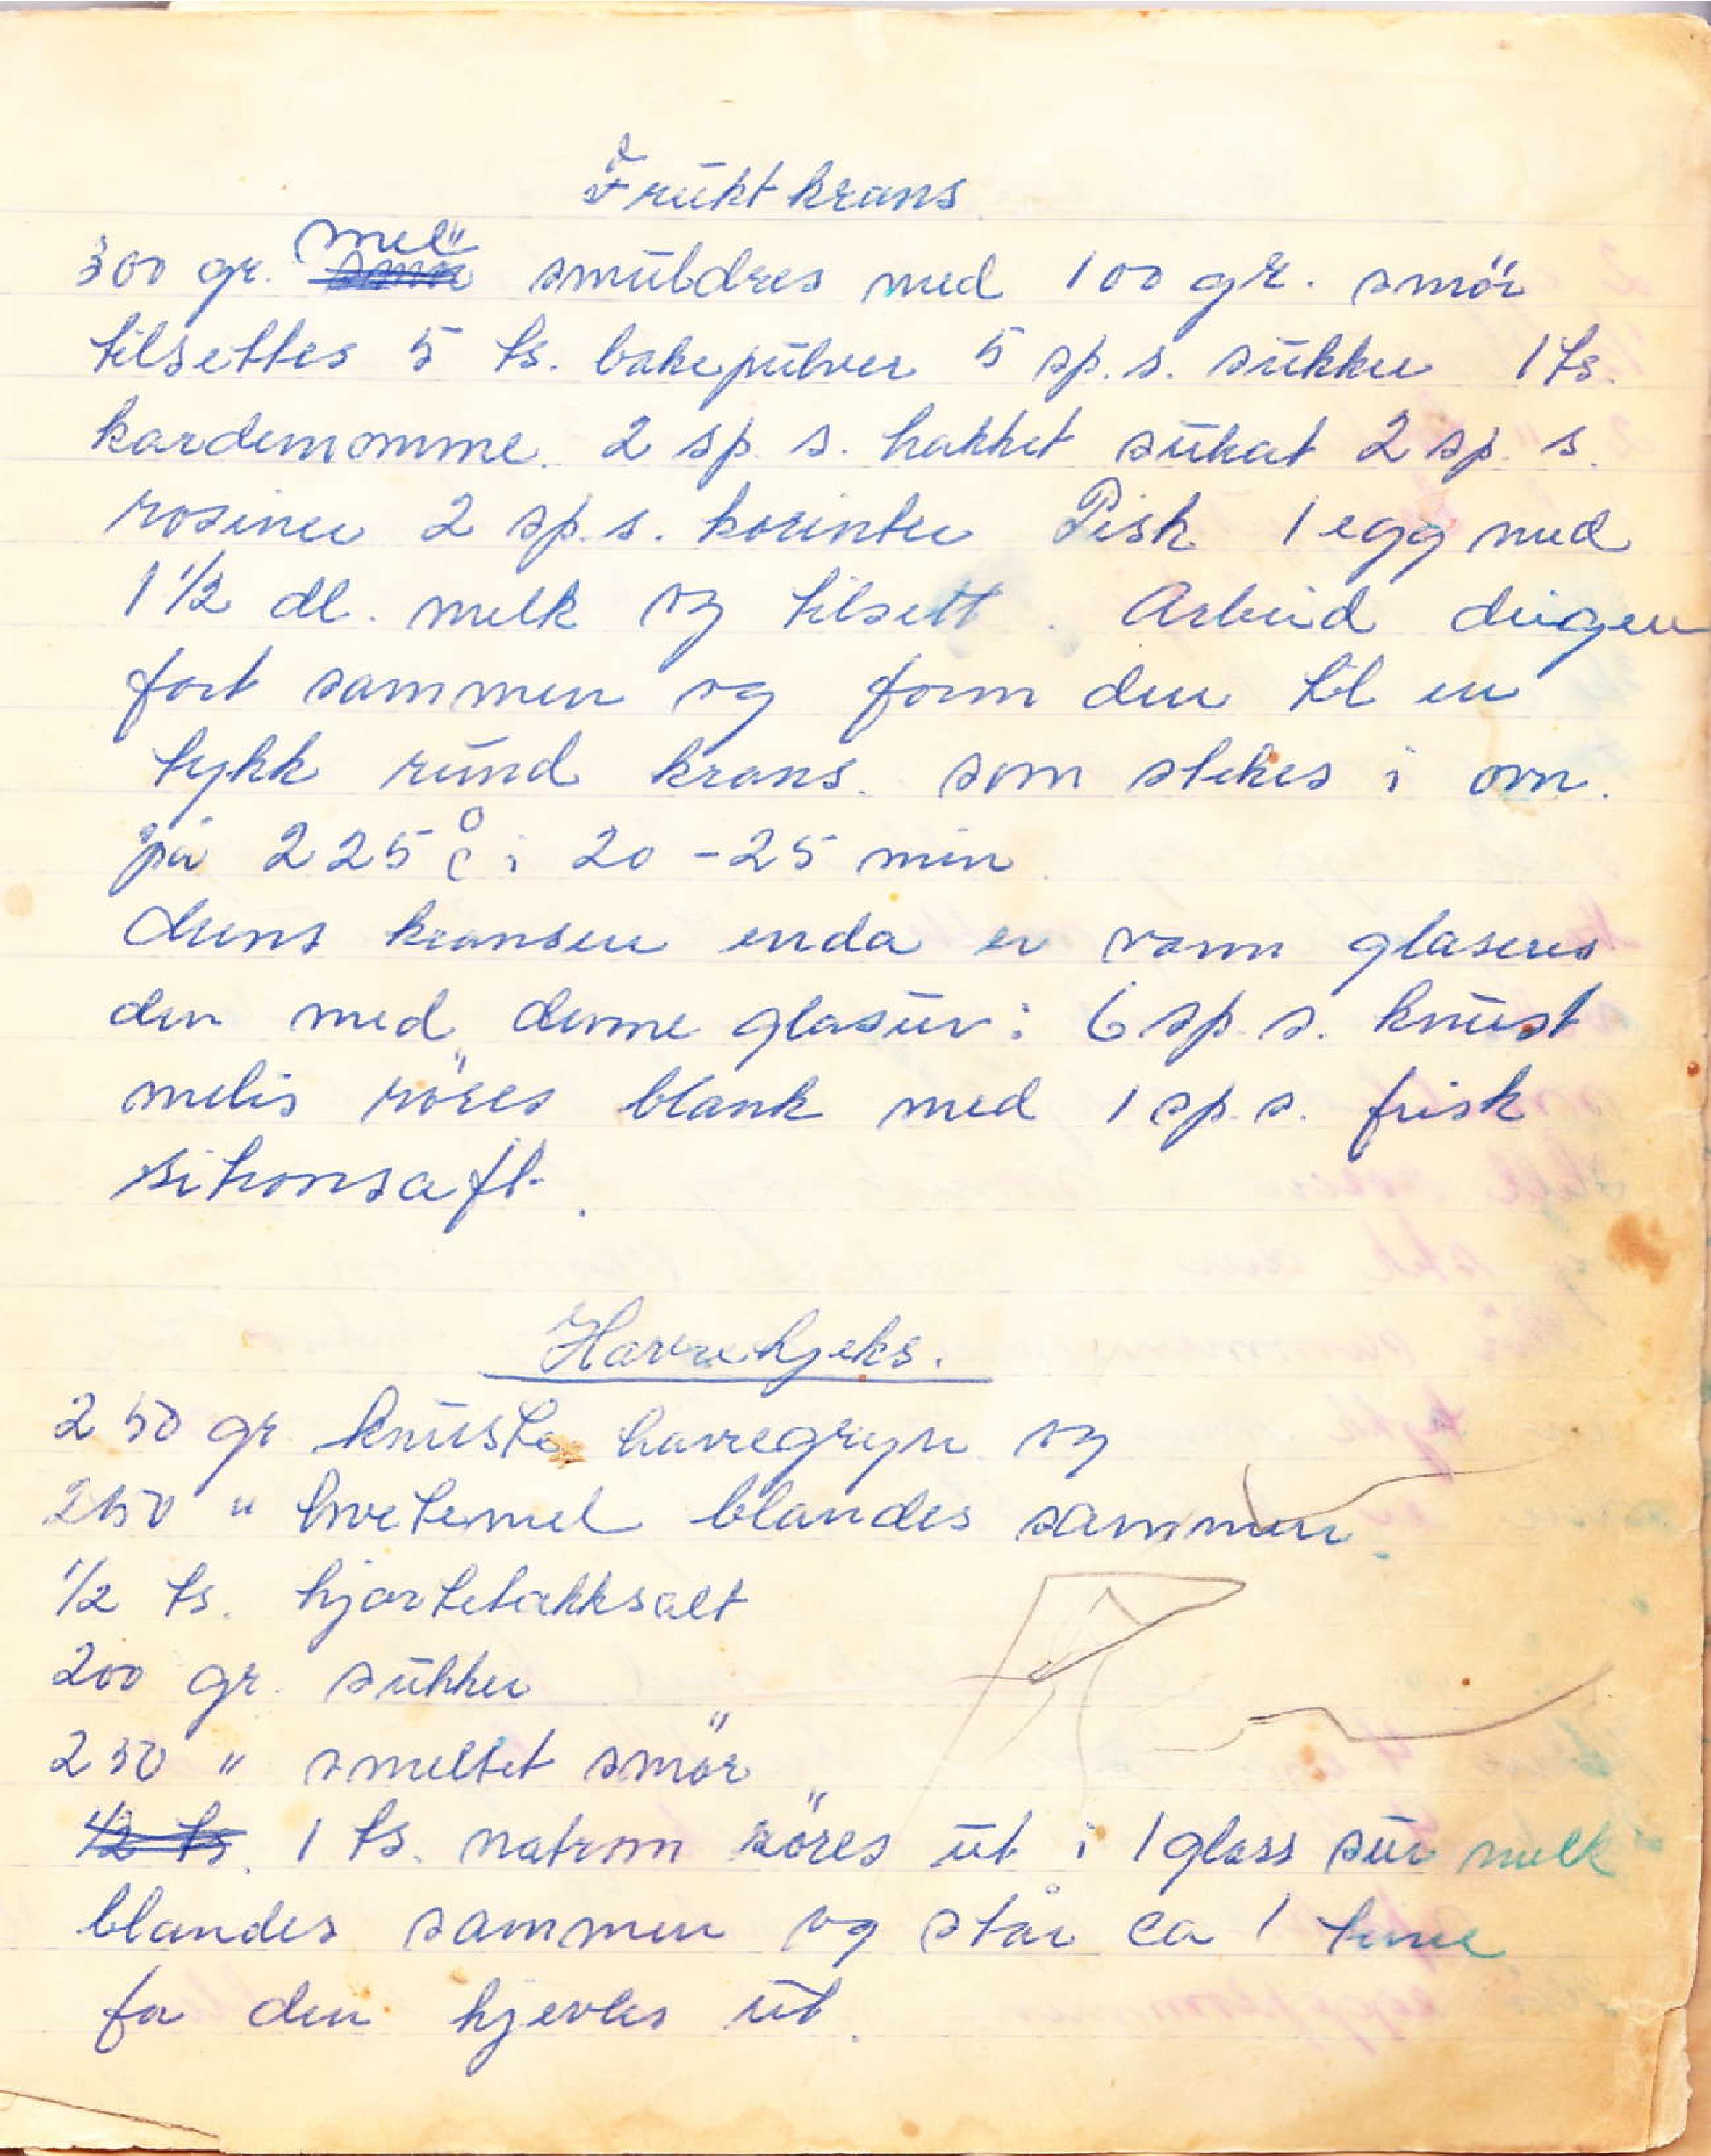 Fruktkrans.
300 gr. mel smuldres med 100 gr. smör
tilsettes 5 ts. bakepulver 5 sp. s. sukker 1 ts.
kardemomme. 2 sp. s. hakket sukat 2 sp. s.
rosiner 2 sp. s. korinter Pisk 1 egg med
1 1/2 dl. melk og tilsett. Arbeid deigen
fort sammen og form den til en
tykk rund krans. som stekes i ovn.
på 225 °C i 20-25 min.
Mens kransen enda er varm glaseres
den med denne glasur: 6 sp. s. knust
melis röres blank med 1 sp. s. frisk
sitronsaft.
Havrekjeks.
250 gr knuste havregryn og
250 " hvetemel blandes sammen.
1/2 ts. hjortetakksalt
200 gr. sukker
250 " smeltet smör
1/2 ts. 1 ts. natron röres ut i 1 glass sur melk
blandes sammen og står ca 1 time
før den kjevles ut.